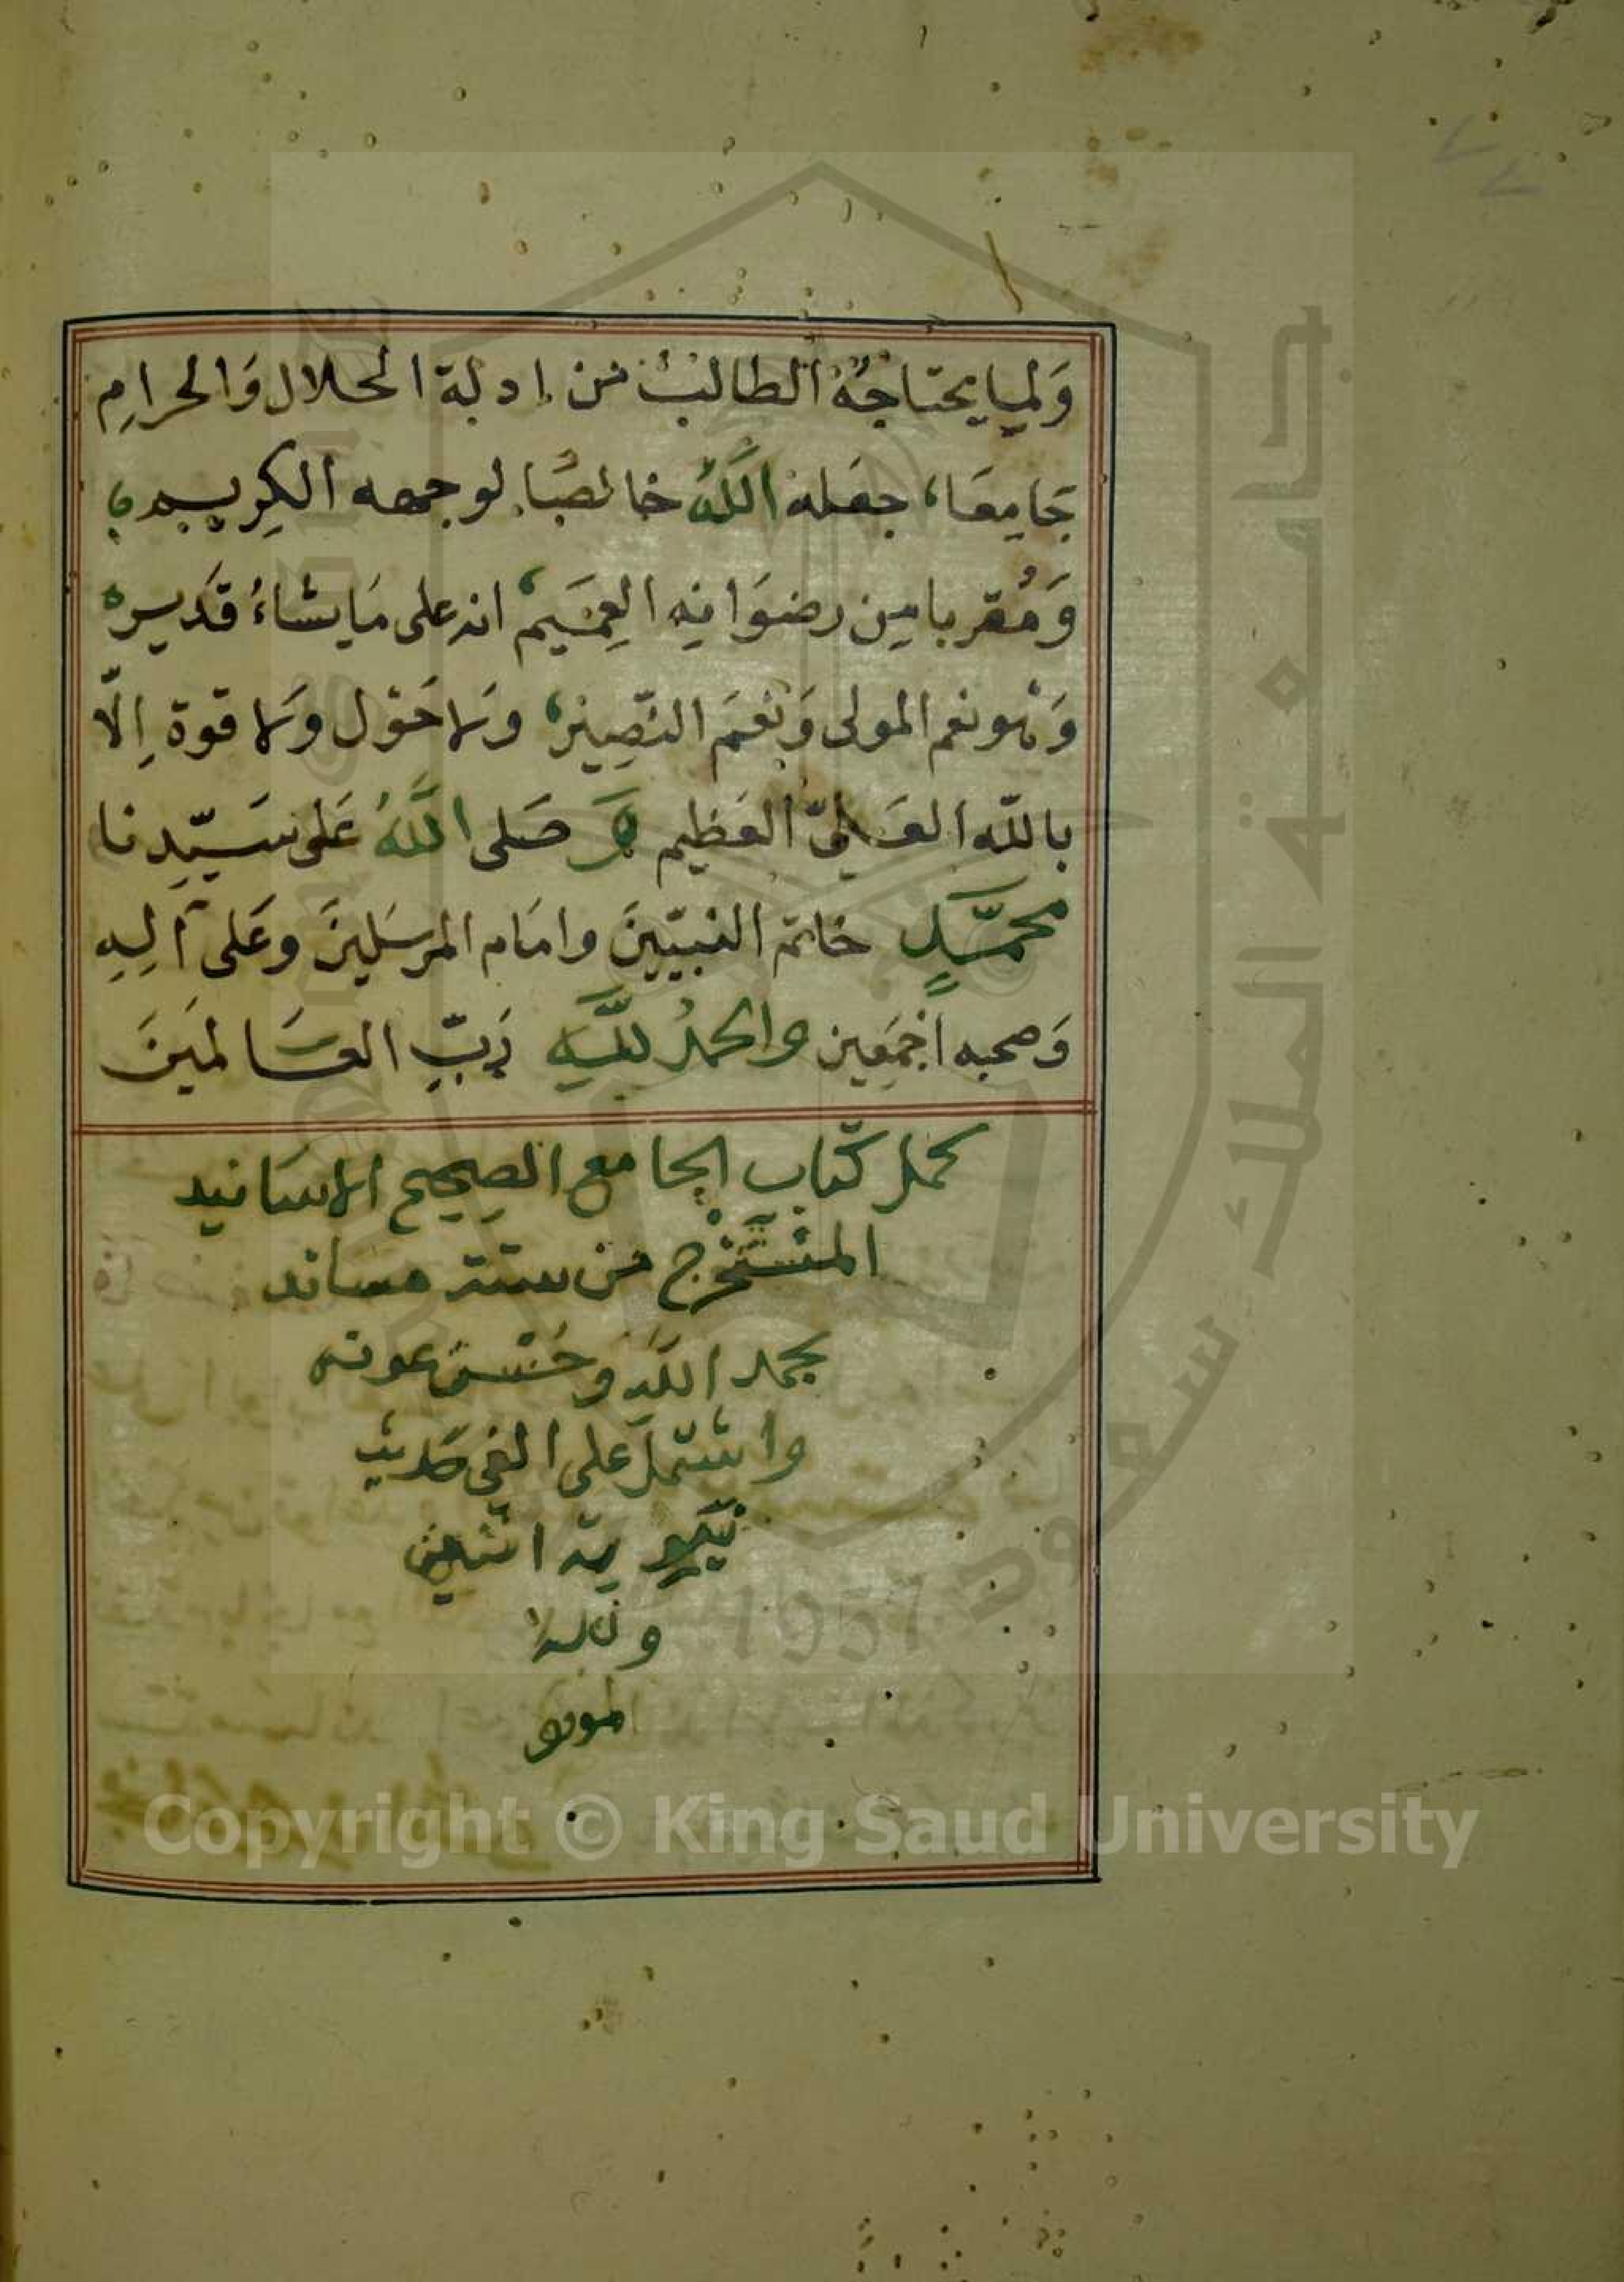 وَلِما يحتاجُهُ الطالبُ من ادلة الحلال وَالحرامِ
جَامِعًا، جعَله اللَّهُ خالصًا لوجهه الكِريم
وَمُقربا مِن رضوَانِهِ العِمَيم، انه على مَا يشاءُ قَدير
وَهو نعم المولى وَنعمَ النّصِير، وَلا حَول وَلا قوة اِلّا
بالله العَليّ العَظيم وَصَلى اللَّهُ عَلى سَيّدِنا
محمّدٍ خاتم النبيّينَ وامَام المرسَلينَ وعَلى آلِهِ
وَصحبه اجمَعين والحمدُ للَّهِ رَبِّ العَالمينَ
كمل كتاب الجامع الصحيح الاسانيد
المسْتَخرج من ستة مساند
بحمد اللَّه وحُسن عونه
واشتمل على الفي حَديث
نبوية اثنين
وثلا
Copyright © King Saud University
جامعة الملك سعود
1957